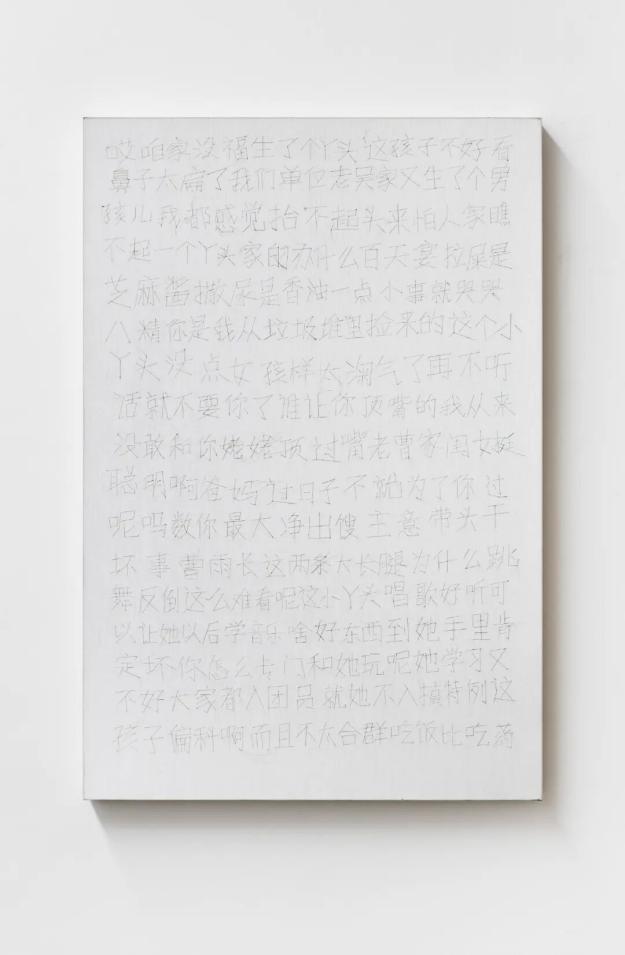 哎咱家没福生了个丫头这孩子不好看
鼻子太扁了我们单位老吴家又生了个男
孩儿我都感觉抬不起头来怕人家瞧
不起一个丫头家的办什么百天宴拉屎是
芝麻酱撒尿是香油一点小事就哭哭
八精你是我从垃圾堆里捡来的这个小
丫头没点女孩样太淘气了再不听
话就不要你了谁让你顶嘴的我从来
没敢和你姥姥顶过嘴老曹家闺女挺
聪明啊爸妈过日子不就为了你过
呢吗数你最大净出馊主意带头干
坏事曹雨长这两条大长腿为什么跳
舞反倒这么难看呢这小丫头唱歌好听可
以让她以后学音乐啥好东西到她手里肯
定坏你怎么专门和她玩呢她学习又
不好大家都入团员就她不入搞特例这
孩子偏科啊而且不太合群吃饭比吃药